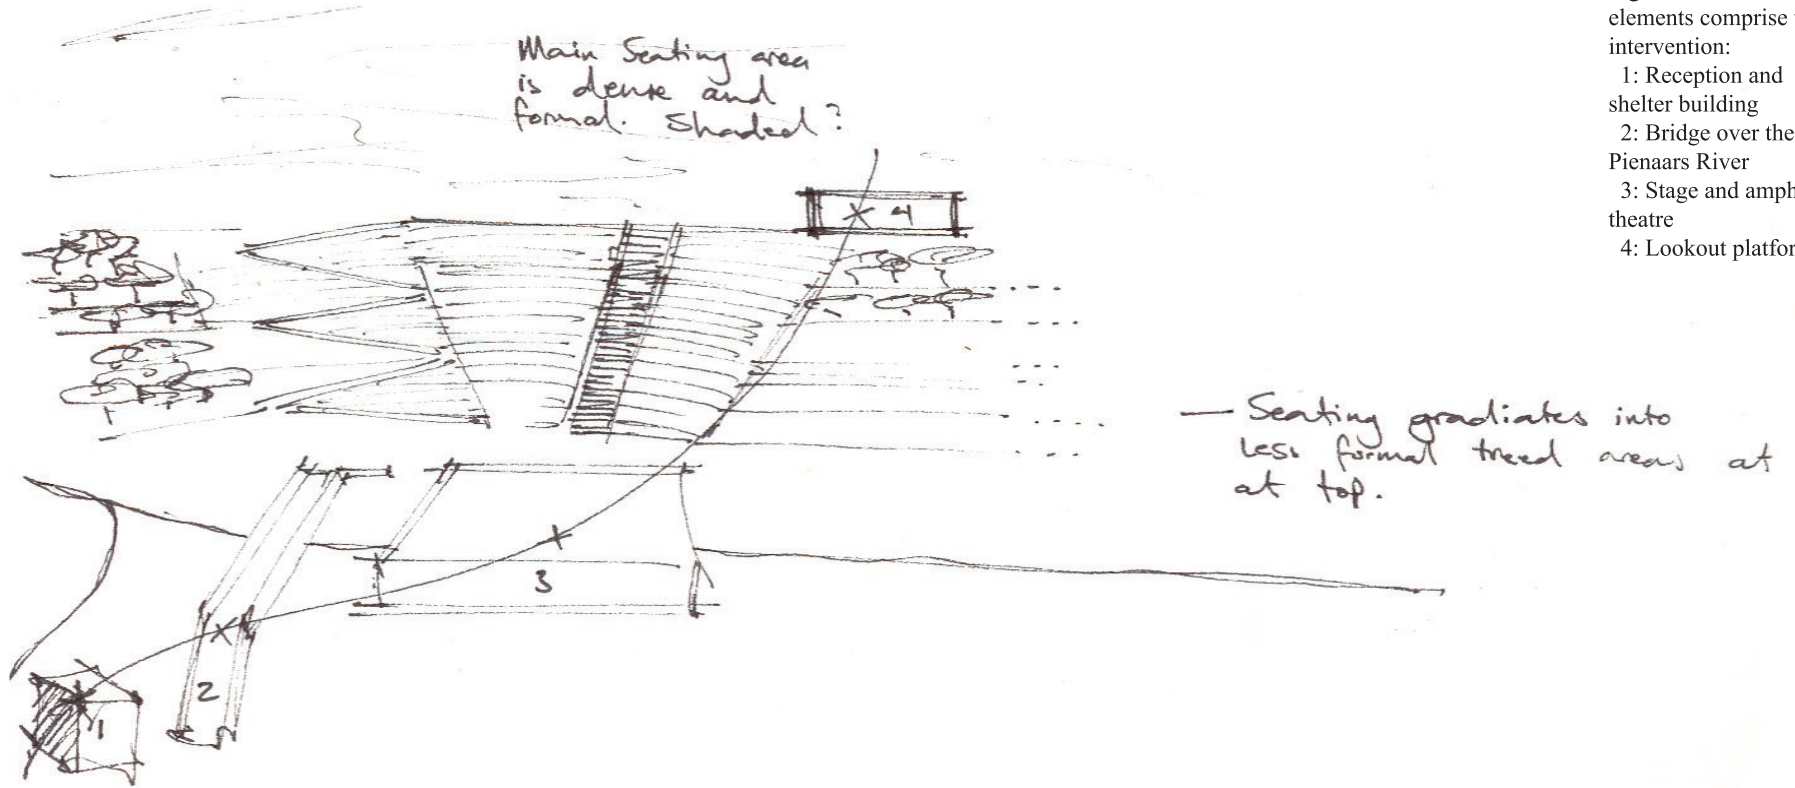 Main Seating area
is dense and
formal. Shaded?
4
— Seating gradiates into
less formal treed areas at
at top.
3
2
1
elements comprise
intervention:
1: Reception and
shelter building
2: Bridge over the
Pienaars River
3: Stage and amph
theatre
4: Lookout platfor